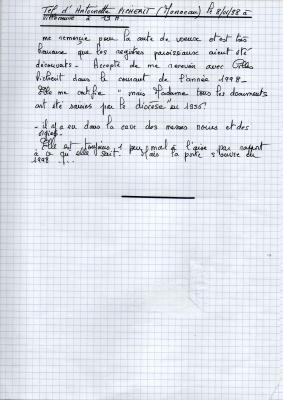 Tel d'Antoinette RICHERIT (Monceau) 8/01/98 à
13 H.
me remercie pour la carte de voeux et est très
heureuse que les registres paroissiaux aient été
découverts - Accepte de me recevoir avec Gilles
Richerit dans le courant de l'année 1998 -
Elle me certifie "mais Madame tous les documents
ont été saisis par le diocèse" en 1950.
- il y a eu dans la cave des messes noires et des
orgies.
Elle est toujours 1 peu mal à l'aise par rapport
à ce qu'elle sait. Mais la porte s'ouvre en
1998 ...